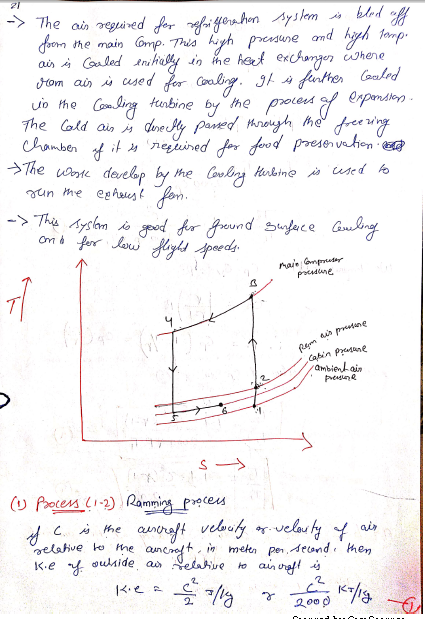 21
-> The air required for refrigeration system is bled off
from the main comp. This high pressure and high temp.
air is cooled initially in the heat exchanger where
ram air is used for cooling. It is further cooled
in the cooling turbine by the process of expansion.
The cold air is directly passed through the freezing
chamber if it is required for food preservation.
-> The work develop by the cooling turbine is used to
run the exhaust fan.
-> This system is good for ground surface cooling
and for low flight speeds.
T
4
3
2
1
5
6
main compressor
pressure
Ram air pressure
Cabin pressure
ambient air
pressure
S →
(1) Process (1-2) Ramming process
if C is the aircraft velocity or velocity of air
relative to the aircraft, in meter per second, then
K.e of outside air relative to aircraft is
K.e = C²/2 J/kg or C²/2000 KJ/kg —(1)